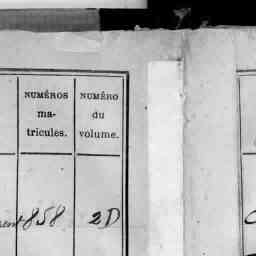 NUMÉROS
ma-
tricules.
NUMÉRO
du
volume.
858 2D